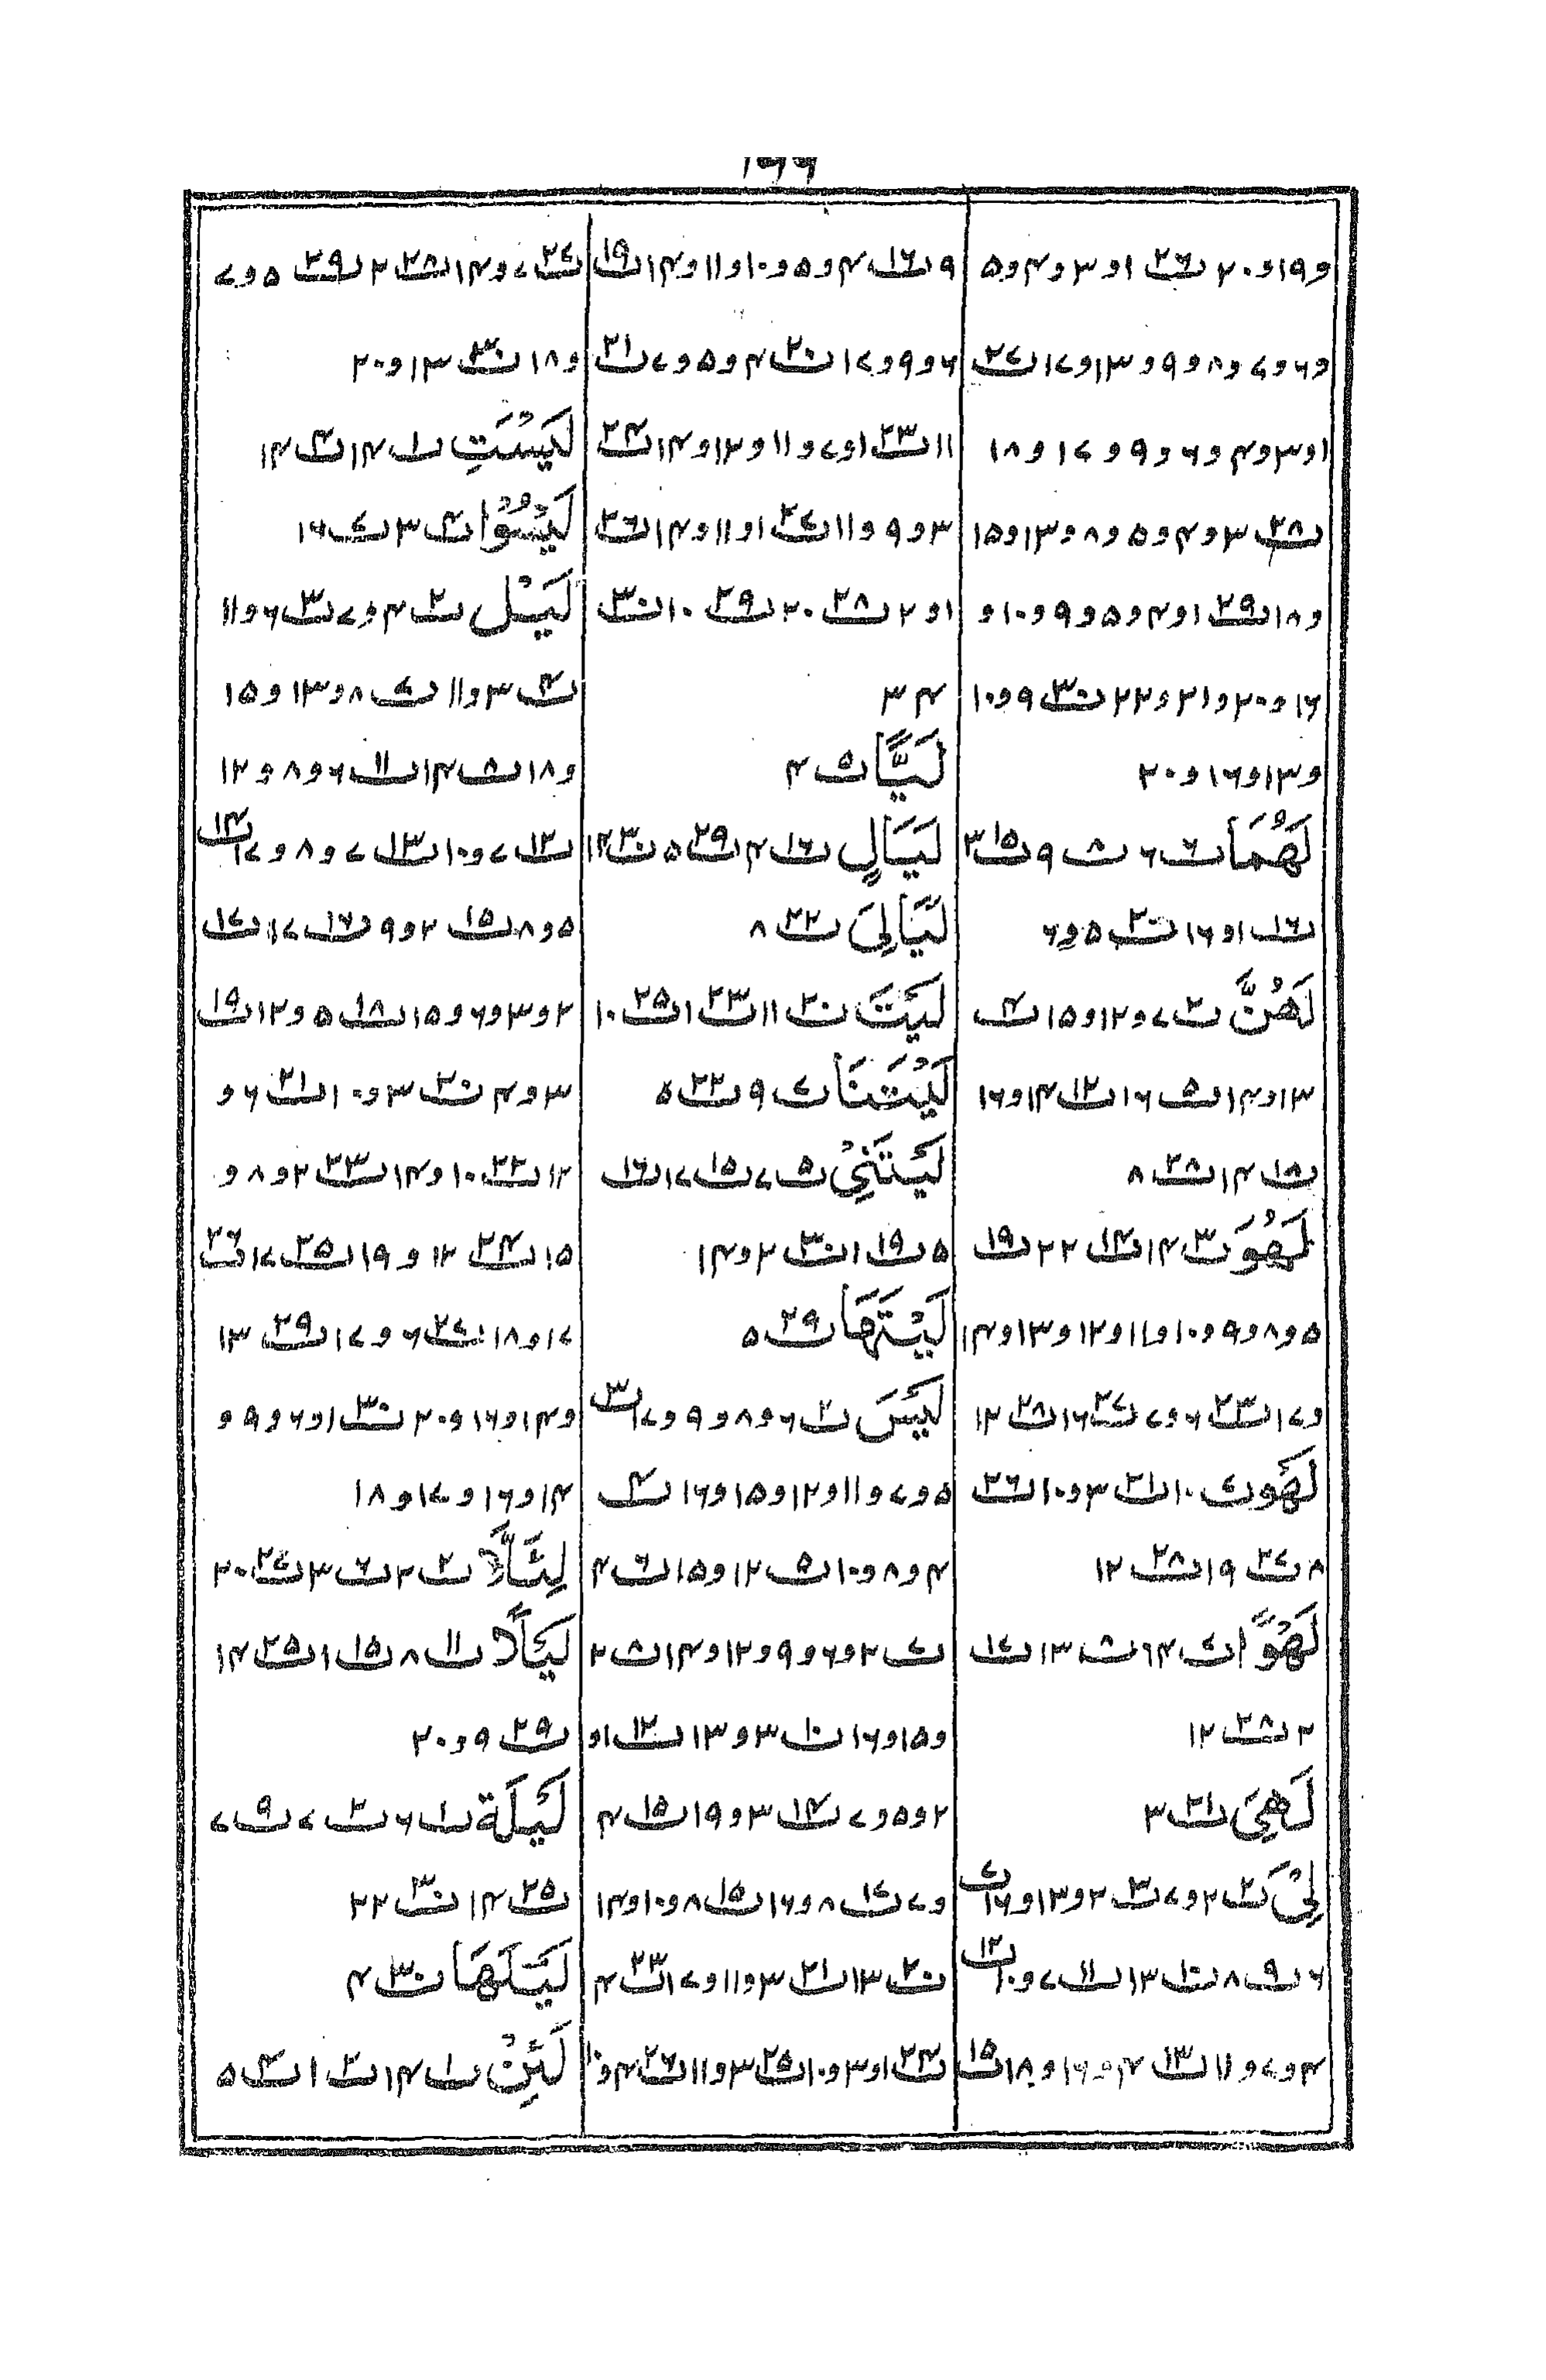 ۱۶۶
و۱۹و۲۰ ت۲۶ ۱و۳و۴و۵
و۶و۷و۸و۹و۱۳و۱۷ت۲۷
۱و۳و۴و۶و۹و۱۷و۱۸
ت۲۸ ۳و۴و۵و۸و۱۳و۱۵
و۱۸ت۲۹ ۱و۴و۵و۹و۱۰و
۱۶و۲۰و۲۱و۲۲ت۳۰ ۹و۱۰
و۱۳و۱۶و۲۰
لَهُمَا ت۶ ۶ت۸ ۹ت۱۵ ۳
ت۱۶ ۱و۱۶ت۲۰ ۵و۶
لَهُنَّ ت۲ ۷و۱۲و۱۵ت۴
۱۳و۱۴ت۵ ۱۶ت۱۲ ۱۴و۱۶
ت۱۸ ۱۴ت۲۸ ۸
لَهُوَ ت۳ ۱۴ت۱۴ ۲۲ت۱۹
۵و۸و۹و۱۰و۱۱و۱۲و۱۳و۱۴
و۱۷ت۲۳ ۶و۷ت۲۷ ۱۶ت۲۸ ۱۲
لَهْو ت۷ ۱۰ت۲۱ ۳و۱۰ت۲۶
۸ت۲۷ ۱۹ت۲۸ ۱۲
لَهْوًا ت۷ ۱۴ت۸ ۱۳ت۱۷
۲ت۲۸ ۱۲
لَهِىَ ت۲۱ ۳
لِىْ ت۲ ۲و۷ت۳ ۲و۱۳و۱۶ت۷
۶ت۹ ۸ت۱۰ ۱۳ت۱۱ ۷و۱۰ت۱۲
۴و۷و۱۱ت۱۳ ۴و۱۶و۱۸ت۱۵
۹ت۱۶ ۴و۵و۱۰و۱۱و۱۴ت۱۹
۶و۹و۱۷ت۲۰ ۴و۵و۷ت۲۱
۱۱ت۲۳ ۱و۷و۱۱و۱۲و۱۴ت۲۴
۳و۹و۱۱ت۲۷ ۱و۱۱و۱۴ت۲۶
۱و۲ت۲۸ ۲۰ت۲۹ ۱۰ت۳۰
۳ ۴
لَيًّا ت۵ ۴
لَيَالٍ ت۱۶ ۴ت۲۹ ۵ت۳۰ ۱۴
لَيَالِىَ ت۲۲ ۸
لَيْتَ ت۲۰ ۱۱ت۲۳ ۱ت۲۵ ۱۰
لَيْتَنَا ت۷ ۹ت۲۲ ۵
لَيْتَنِىْ ت۵ ۷ت۱۵ ۱۷ت۱۶
۵ت۱۹ ۱ت۳۰ ۲و۱۴
لَيْتَهَا ت۲۹ ۵
لَيْسَ ت۲ ۶و۸و۹و۱۷ت۳
۵و۷و۱۱و۱۲و۱۵و۱۶ت۴
۴و۸و۱۰ت۵ ۱۲و۱۵ت۶ ۴
ت۷ ۲و۶و۹و۱۲و۱۴ت۸ ۲
و۱۵و۱۶ت۱۰ ۳و۱۳ت۱۲ ۱و
۲و۵و۷ت۱۴ ۳و۱۹ت۱۵ ۴
و۷ت۱۷ ۸و۱۶ت۱۵ ۸و۱۰و۱۴
ت۲۰ ۱۳ت۲۱ ۳و۱۱و۱۷ت۲۳ ۴
ت۲۴ ۱و۳و۱۰ت۲۵ ۳و۱۱ت۲۶ ۴و۱۰
ت۲۷ ۷و۱۴ت۲۸ ۲ت۲۹ ۵و۷
و۱۸ت۳۰ ۱۳و۲۰
لَيْسَتِ ت۱ ۱۴ت۴ ۱۴
لَيْسُوْا ت۴ ۳ت۷ ۱۶
لَيْل ت۲ ۴و۷ت۳ ۶و۱۱
ت۴ ۳و۱۱ت۷ ۸و۱۳و۱۵
و۱۸ت۸ ۱۴ت۱۱ ۶و۸و۱۲
ت۱۲ ۷و۱۰ت۱۳ ۷و۸و۱۷ت۱۴
۵و۸ت۱۵ ۲و۹ت۱۶ ۱۷ت۱۷
۲و۳و۶و۱۵ت۱۸ ۵و۱۲ت۱۹
۳و۴ت۲۰ ۳و۱۰ت۲۱ ۶و
۱۲ت۲۲ ۱۰و۱۴ت۲۳ ۲و۸و
۱۵ت۲۴ ۱۲و۱۹ت۲۵ ۱۷ت۲۶
۱۷و۱۸ت۲۷ ۶و۱۷ت۲۹ ۱۳
و۱۴و۱۶و۲۰ت۳۰ ۱و۶و۹و
۱۴و۱۶و۱۷و۱۸
لِئَلَّا ت۲ ۲ت۶ ۳ت۲۷ ۲۰
لَيْلًا ت۱۱ ۸ت۱۵ ۱ت۲۵ ۱۴
ت۲۹ ۹و۲۰
لَيْلَة ت۱ ۶ت۲ ۷ت۹ ۷
ت۲۵ ۱۴ت۳۰ ۲۲
لَيْلَهَا ت۳۰ ۴
لَئِنْ ت۱ ۱۴ت۲ ۱ت۴ ۵